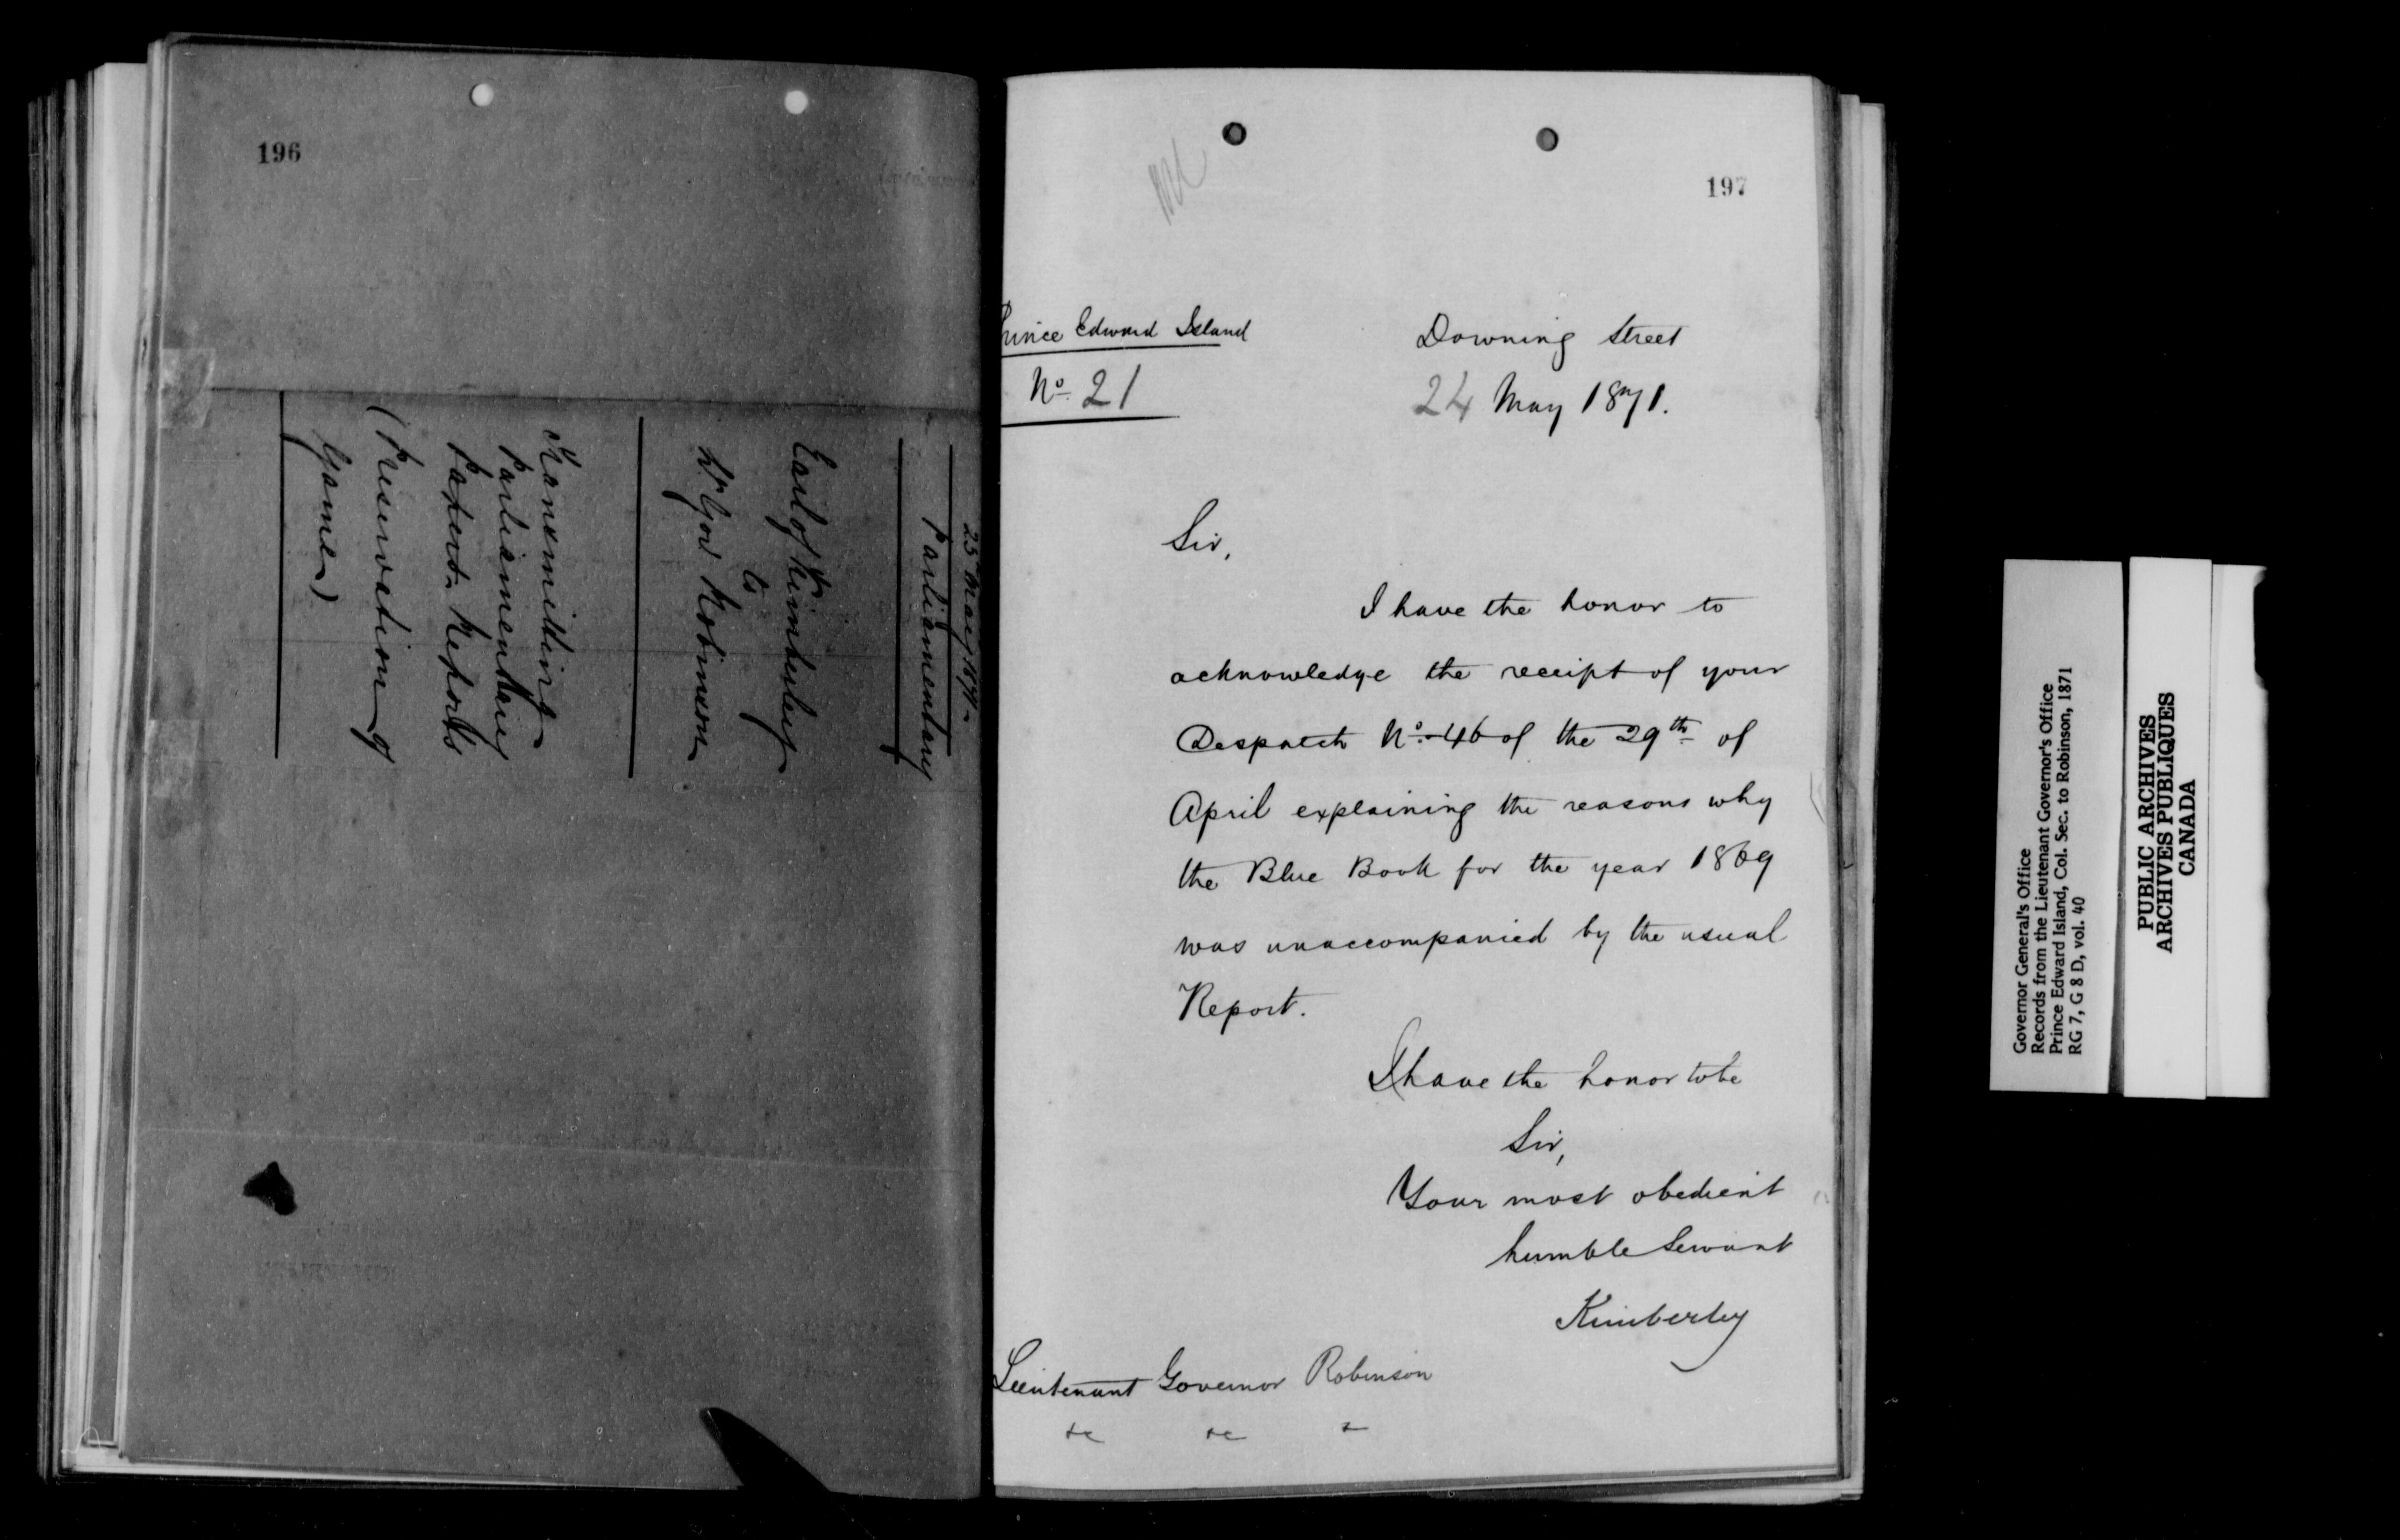 196
25 May 1871
Parliamentary
Earl of Kimberley
to
Lt Gov Robinson
Transmitting
Parliamentary
Papers. Reports
(Preservation of
Game)
197
Prince Edward Island
No. 21
Downing Street
24 May 1871.
Sir,
I have the honor to
acknowledge the receipt of your
Despatch No. 46 of the 29th of
April explaining the reasons why
the Blue Book for the year 1869
was unaccompanied by the usual
Report.
I have the honor to be
Sir,
Your most obedient
humble Servant
Kimberley
Lieutenant Governor Robinson
&c &c &
Governor General's Office
Records from the Lieutenant Governor's Office
Prince Edward Island, Col. Sec. to Robinson, 1871
RG 7, G 8 D, vol. 40
PUBLIC ARCHIVES
ARCHIVES PUBLIQUES
CANADA